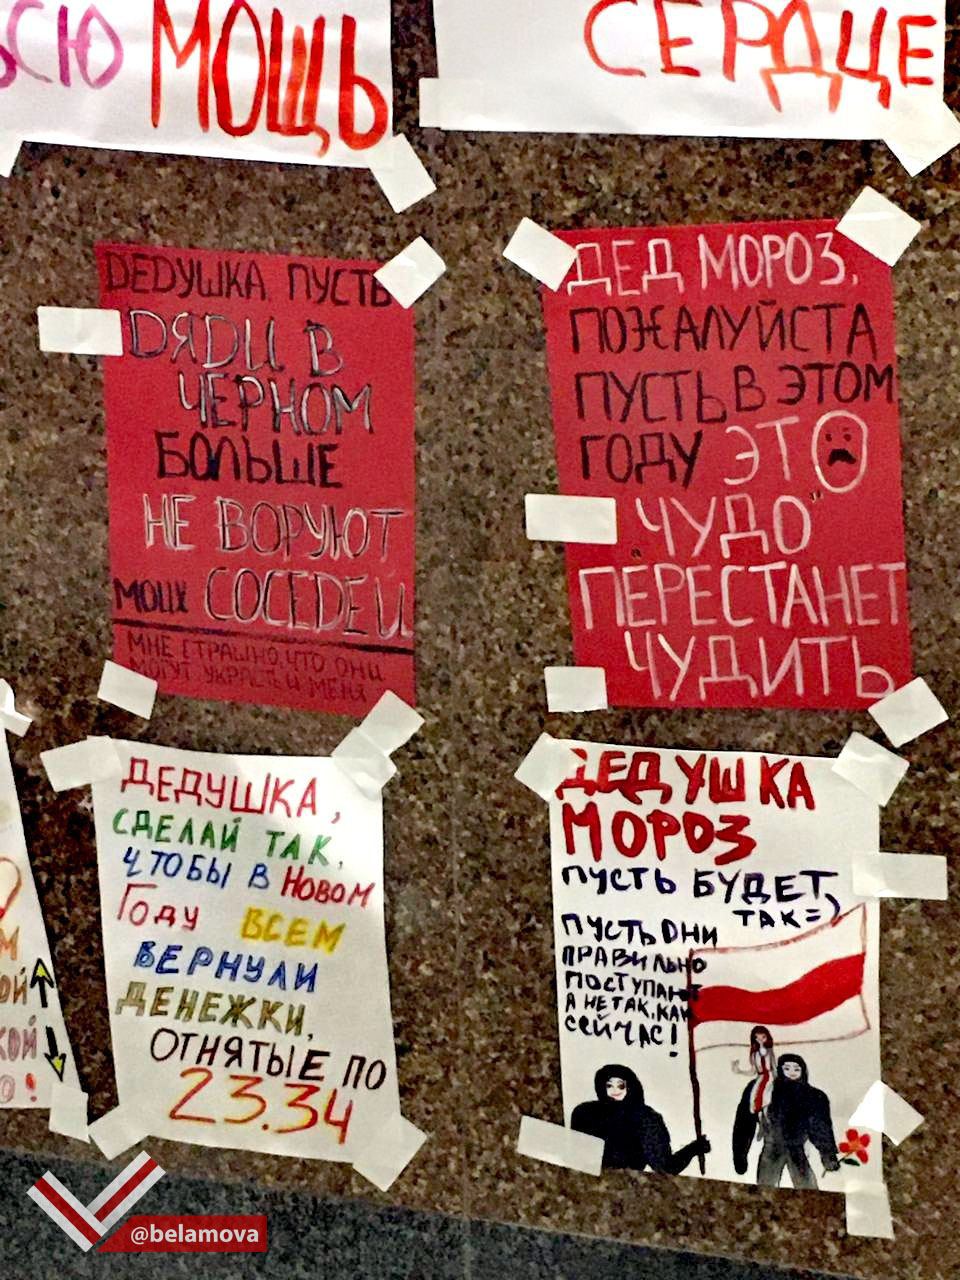 СЮ МОЩЬ
СЕРДЦЕ
ДЕДУШКА, ПУСТЬ
ДЯДИ В
ЧЕРНОМ
БОЛЬШЕ
НЕ ВОРУЮТ
МОИХ СОСЕДЕЙ
МНЕ СТРАШНО, ЧТО ОНИ
МОГУТ УКРАСТЬ И МЕНЯ
ДЕД МОРОЗ,
ПОЖАЛУЙСТА
ПУСТЬ В ЭТОМ
ГОДУ ЭТО
„ЧУДО"
ПЕРЕСТАНЕТ
ЧУДИТЬ
ДЕДУШКА,
СДЕЛАЙ ТАК,
ЧТОБЫ В НОВОМ
ГОДУ ВСЕМ
ВЕРНУЛИ
ДЕНЕЖКИ,
ОТНЯТЫЕ ПО
23.34
ДЕДУШКА
МОРОЗ
ПУСТЬ БУДЕТ
ТАК=)
ПУСТЬ ОНИ
ПРАВИЛЬНО
ПОСТУПАЮТ
А НЕ ТАК, КАК
СЕЙЧАС!
@belamova